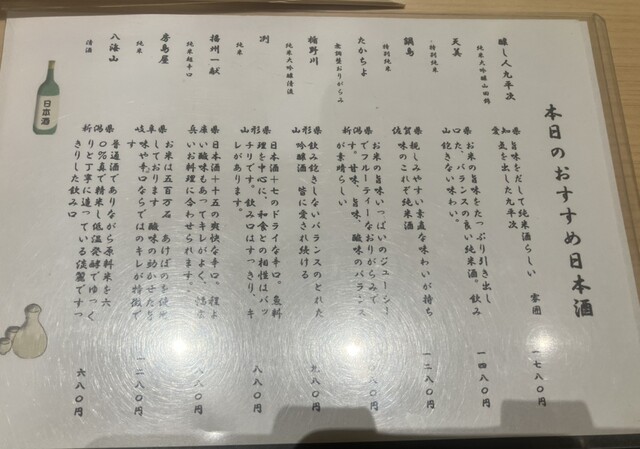 本日のおすすめ日本酒
醸し人九平次
純米大吟醸山田錦
愛知県
旨味をだして純米酒らしい 雰囲
気を出した九平次
一七八〇円
天美
特別純米
山口県
お米の旨味をたっぷり引き出し
た、バランスの良い純米酒。飲み
飽きない味わい。
一四八〇円
鍋島
特別純米
佐賀県
親しみやすい素直な味わいが持ち
味のこれぞ純米酒
一二八〇円
たかちよ
無調整おりがらみ
新潟県
お米の旨味いっぱいのジューシー
でフルーティーなおりがらみで
す。甘味、旨味、酸味のバランス
が素晴らしい
八〇円
楯野川
純米大吟醸清流
山形県
飲み飽きしないバランスのとれた
吟醸酒 皆に愛され続ける
九八〇円
洌
純米
山形県
日本酒+七のドライな辛口。魚料
理を中心に、和食との相性はバッ
チリです。飲み口はすっきり、キ
レがあります。
八八〇円
播州一献
純米超辛口
兵庫県
日本酒+十五の爽快な辛口。程よ
い酸味もあってキレがよく、濃
いお料理に合わせられます。
八八〇円
房島屋
純米
岐阜県
お米は五百万石 あけぼのを使用
しております。酸味の効かせた旨
味や辛口ならではのキレが特徴で
す
一二八〇円
八海山
清酒
新潟県
普通酒でありながら原料米を六
〇%まで精米し低温発酵でゆっく
りと丁寧に造っている淡麗ですっ
きりした飲み口
六八〇円
日本酒